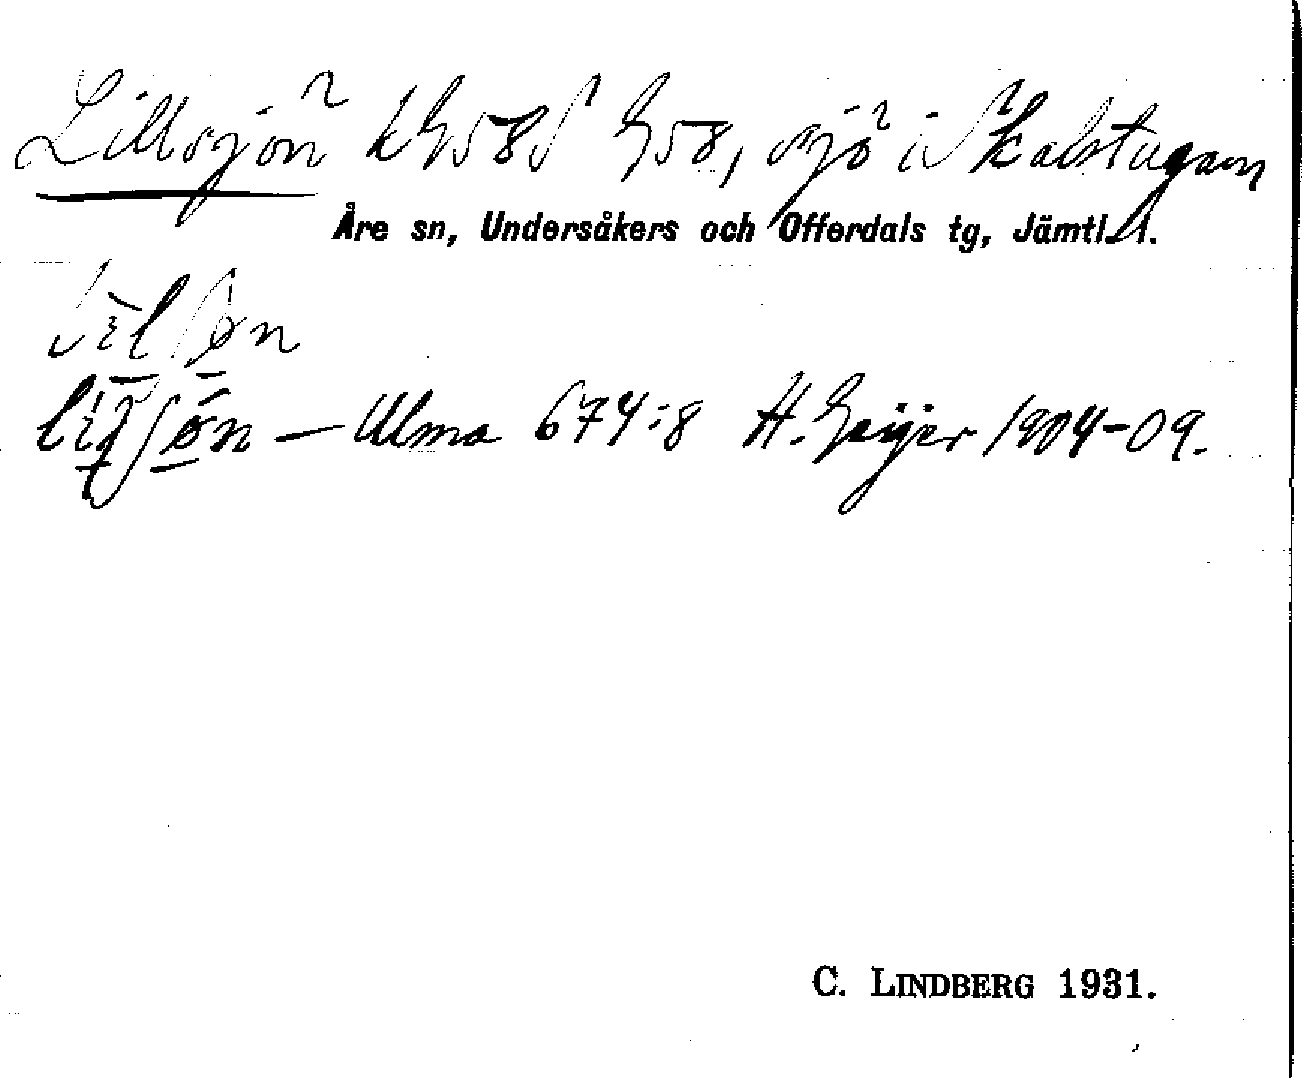 Lillsjön k G58S G58, sjö i Skalstugan
Åre sn, Undersåkers och Offerdals tg, Jämtl. l.
— Ulma 674:8 H. Geijer 1904-09.
C. LINDBERG 1931.